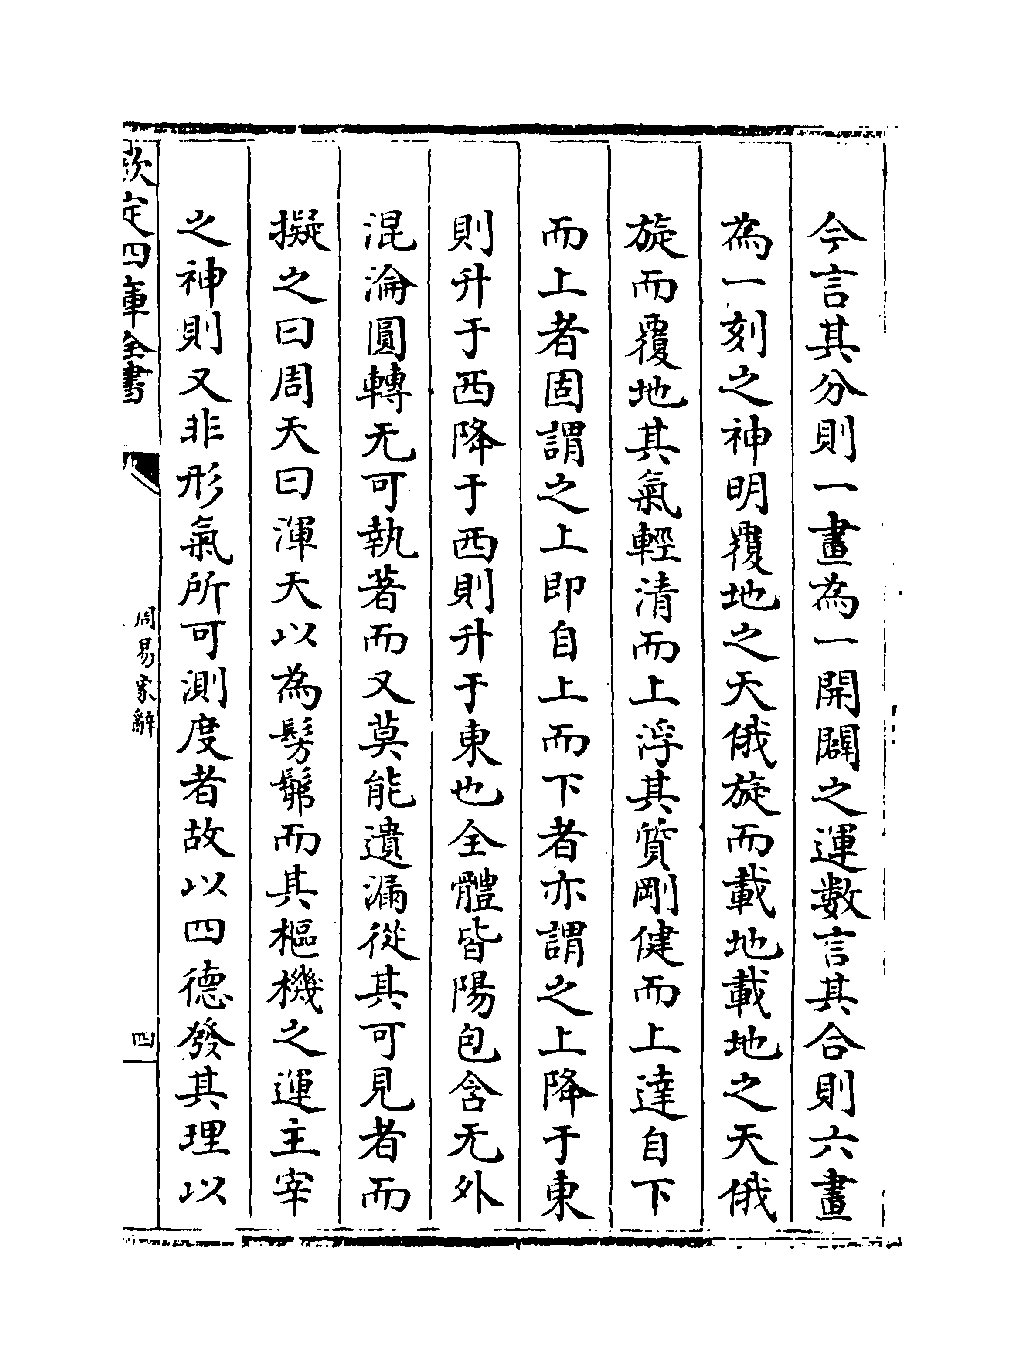 今言其分則一畫為一開闢之運數言其合則六畫
為一刻之神明覆地之天俄旋而載地載地之天俄
旋而覆地其氣輕清而上浮其質剛健而上達自下
而上者固謂之上即自上而下者亦謂之上降于東
則升于西降于西則升于東也全體皆陽包含无外
混淪圓轉无可執著而又莫能遺漏從其可見者而
擬之曰周天曰渾天以為髣髴而其樞機之運主宰
之神則又非形氣所可測度者故以四德發其理以
欽定四庫全書
周易象辭
四